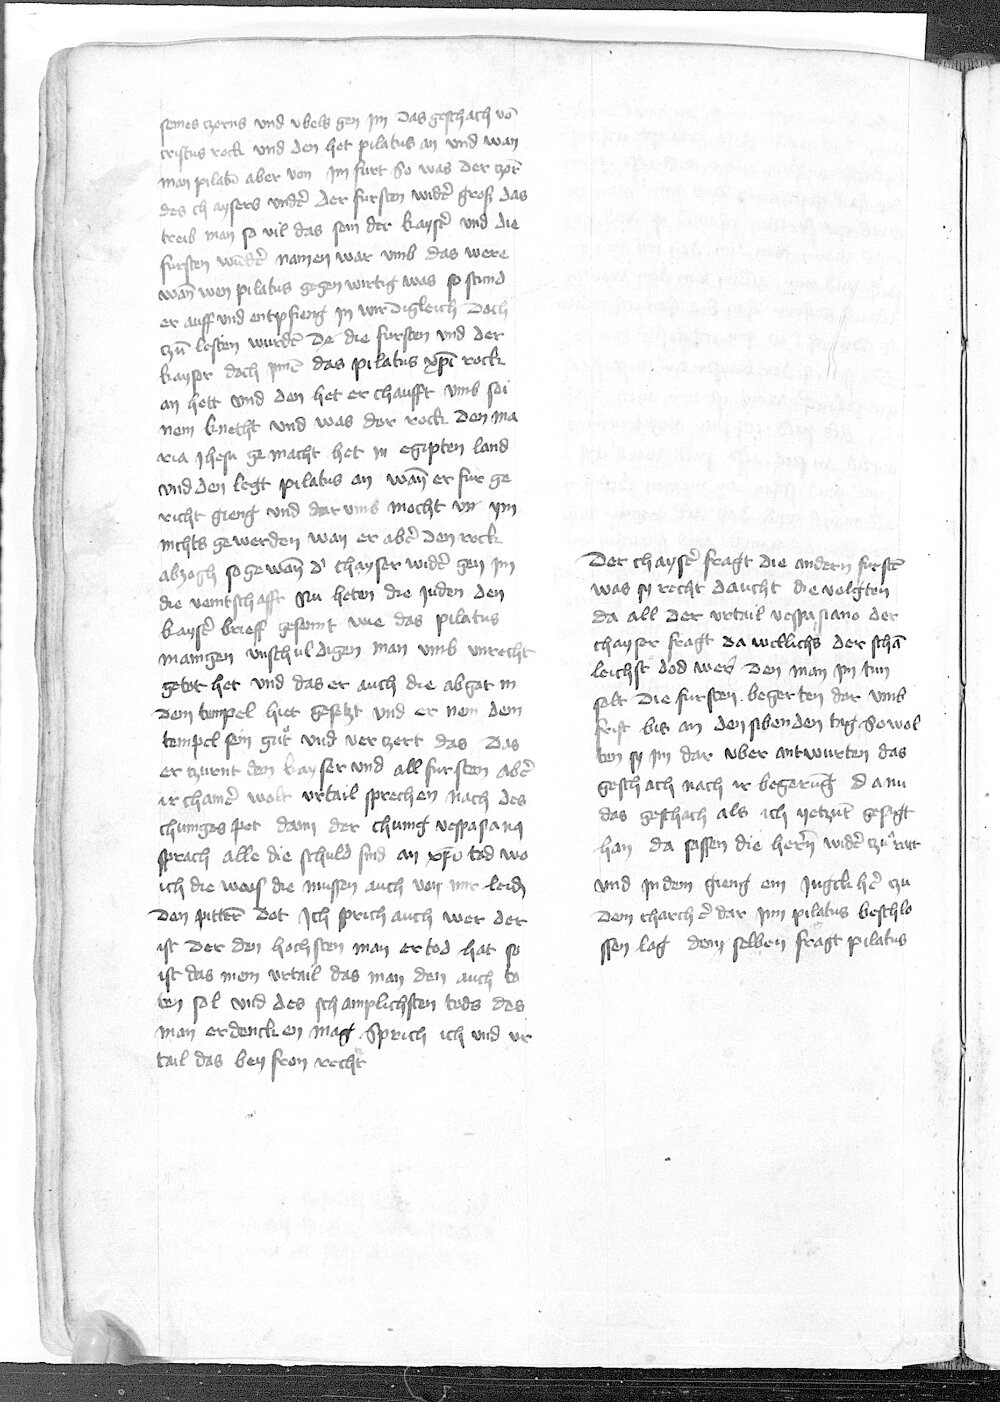 seines czorns vnd vbels gen jm das geschach võ
cristus rock vnd den het pilatus an vnd wan
man pilatũ aber von jm furt So was der czorñ
des chaysers vndter der fursten wider groß das
treib man so vil das sein der kayser vnd die
fursten nämen war vmb das were
wan̄ wen pilatus gegenwirtig was so stund
er auff vnd entpfieng jn wirdigleich Doch
czü lesten wurdē de die fursten vnd der
kayser doch jnnē das pilatus xp̄i rock
an hett vnd den het er chaufft vmb sei
nem knecht vnd was der rock den ma
ria jhesu gemacht het in egipten land
vnd den legt pilatus an wan̄ er fur ge
richt gieng vnd dar vmb mocht vn̄ jm
nichts gewerden wan er aber den rock
abzogh so gewan̄ d' chayser wider gen jm
die veintschafft Nu heten die juden den
kayser brieff gesennt wie das pilatus
manigen vnschuldigen man vmb vnrecht
getot het vnd das er auch die abgot in
dem tempel hiet gesetzt vnd er nem dem
tempel sein güt vnd verczert das Das
erczurnt den kayser vnd all fursten aber
ir chainer wolt vrtail sprechen nach des
chuniges pet dann der chunig vespasianq
sprach alle die schuld sind an xp̄i tod wo
ich die wais die mussen auch von mir leidn
den pittern̄ dot Jch sprich auch wer der
ist der den hochsten man ertod hat so
ist das mein vrtail das man den auch to
ten sol vnd des schamplichsten tods des
man erdencken mag Sprich ich vnd vr
tail das bey fron recht
Der chayser fragt die andern furstē
was sy recht daucht die volgten
da all der vrtail vespasiano der
chayser fragt da wellichs der schā
leichst dod wer den man jm tun
solt Die fursten begerten dar vmb
frist bis an den sibenden tag So wol
ten sy jm dar vber antwurten das
geschach nach ir begerūg da nu
das geschach als ich yetzūt gesagt
han da sassen die hern̄ wider czü rat
vnd jn dem gieng ein jugkher czu
dem charcher dar jnn pilatus beschlo
ssen lag dem selben fragt pilatus